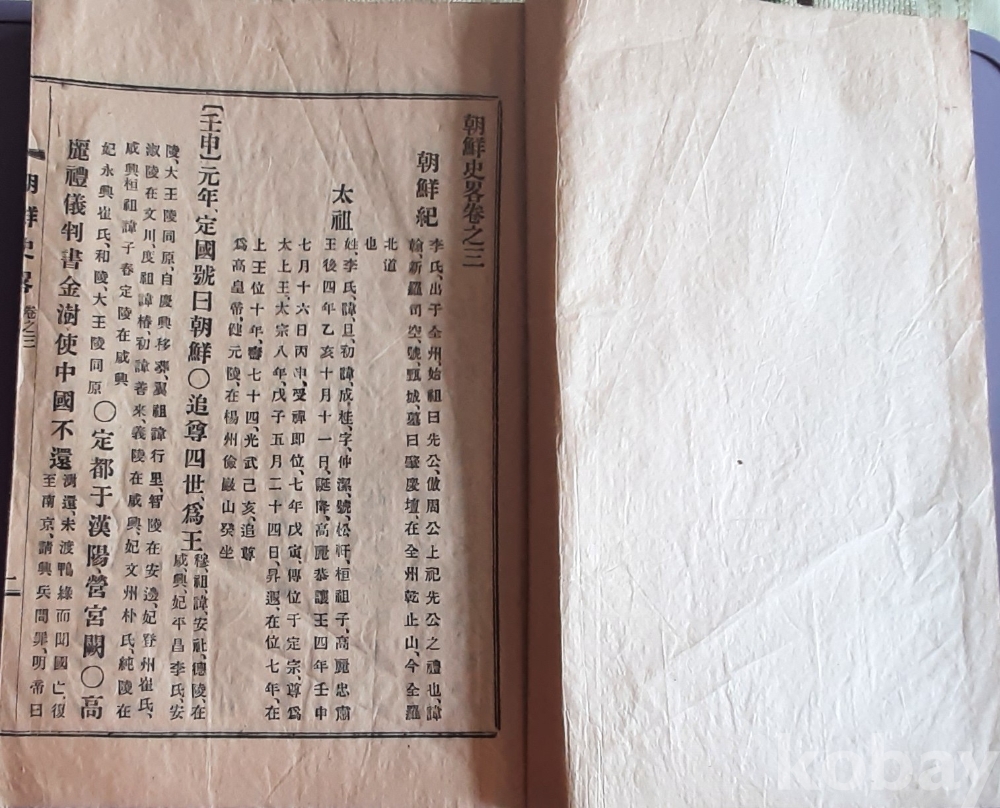 朝鮮史畧卷之三
朝鮮紀
李氏、出于全州、始祖曰先公、倣周公上祀先公之禮也、諱
翰、新羅司空、號、甄城、墓曰肇慶壇、在全州乾止山、今全羅
北道
也
太祖
姓、李氏、諱、旦、初諱、成、桂、字、仲潔、號、松軒、桓祖子、高麗忠肅
王後四年乙亥十月十一日、誕降、高麗恭讓王四年壬申
七月十六日丙申、受禪即位、七年戊寅、傳位于定宗、尊爲
太上王、太宗八年、戊子五月二十四日、昇遐、在位七年、在
上王位十年、壽七十四、光武己亥、追尊
爲高皇帝、健元陵、在楊州儉巖山癸坐
〔壬申〕元年、定國號曰朝鮮〇追尊四世、爲王
穆、祖、諱、安社、德陵、在
咸、興、妃平昌李氏、安
陵、大王陵同原、自慶興移葬、翼祖諱行里、智陵在安邊、妃登州崔氏、
淑陵在文川、度祖諱椿、初諱善來、義陵在咸興、妃文州朴氏、純陵在
咸興桓祖諱子春定陵在咸興
妃永興崔氏、和陵、大王陵同原
〇定都于漢陽、營宮闕〇高
麗禮儀判書金澍使中國不還
澍還、未渡鴨綠而聞國亡、復
至南京、請興兵問罪、明帝曰
朝鮮史畧 卷之三
一
kobay